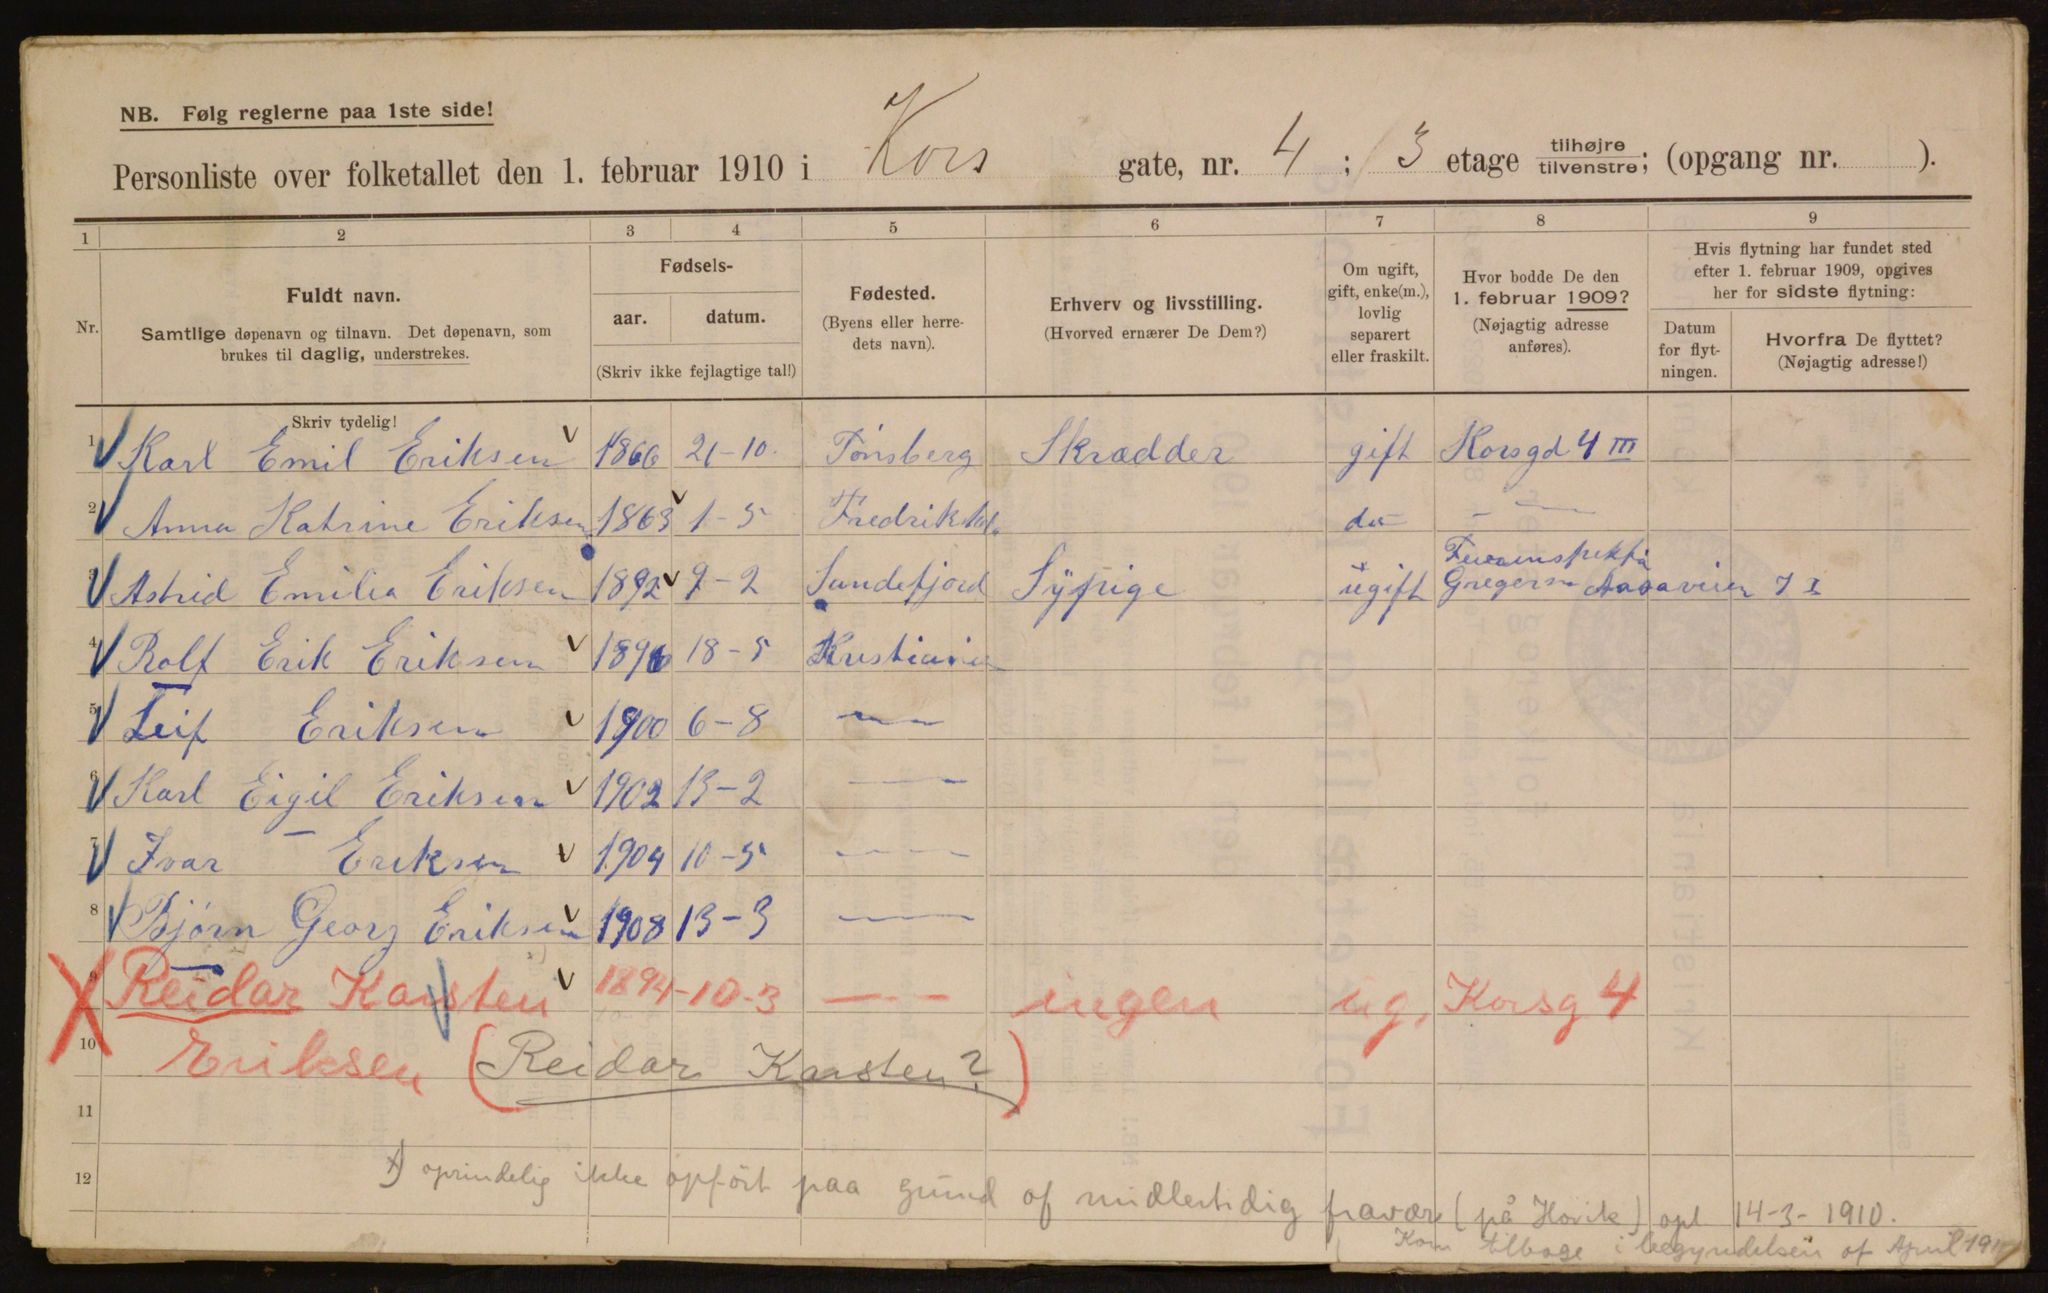 NB. Følg reglerne paa 1ste side!
Personliste over folketallet den 1. februar 1910 i Kors gate, nr. 4 ; 3 etage tilhøjre tilvenstre; (opgang nr. ).
1 2 3 4 5 6 7 8 9
Nr.
Fuldt navn.
Samtlige døpenavn og tilnavn. Det døpenavn, som
brukes til daglig, understrekes.
Fødsels-
aar. datum.
(Skriv ikke fejlagtige tal!)
Fødested.
(Byens eller herre-
dets navn).
Erhverv og livsstilling.
(Hvorved ernærer De Dem?)
Om ugift,
gift, enke(m.),
lovlig
separert
eller fraskilt.
Hvor bodde De den
1. februar 1909?
(Nøjagtig adresse
anføres).
Hvis flytning har fundet sted
efter 1. februar 1909, opgives
her for sidste flytning:
Datum
for flyt-
ningen.
Hvorfra De flyttet?
(Nøjagtig adresse!)
Skriv tydelig!
1 Karl Emil Eriksen 1866 21-10. Tønsberg Skrædder gift Korsgd 4 III
2 Anna Katrine Eriksen 1863 1-5 Fredrikstad do — —
3 Astrid Emilia Eriksen 1892 9-2 Sandefjord Sypige ugift Gregersen 7 I
4 Rolf Erik Eriksen 1896 18-5 Kristiania
5 Leif Eriksen 1900 6-8 — —
6 Karl Eigil Eriksen 1902 13-2 — —
7 Ivar Eriksen 1904 10-5 — —
8 Bjørn Georg Eriksen 1908 13-3 — —
9 Reidar Karsten 1894-10-3 — — ingen ug. Korsg 4
10 Eriksen (Reidar Karsten?)
11
12
x) oprindelig ikke opført paa grund af midlertidig fravær (på Høvik) opl 14-3-1910.
Kom tilbage i begyndelsen af April 1910